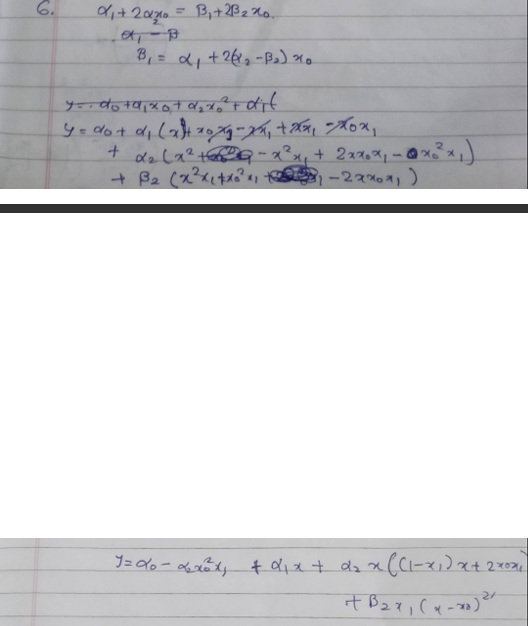 6. α₁ + 2α₂x₀ = β₁ + 2β₂x₀.
α₁ - β
β₁ = α₁ + 2(α₂ - β₂) x₀
y = α₀ + α₁x₀ + α₂x₀² + α₁(
y = α₀ + α₁ (x + x₀x₁ - xx₁ + xx₁ - x₀x₁
+ α₂ (x² + - x²x₁ + 2xx₀x₁ - x₀²x₁)
+ β₂ (x²x₁ + x₀²x₁ - 2xx₀x₁)
y = α₀ - α₂x₀²x₁ + α₁x + α₂ x((1-x₁)x + 2x₀x₁
+ β₂x₁ (x - x₀)²